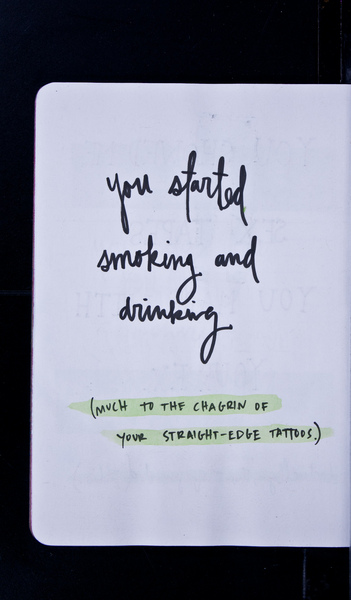 you started
smoking and
drinking
(MUCH TO THE CHAGRIN OF
YOUR STRAIGHT-EDGE TATTOOS.)